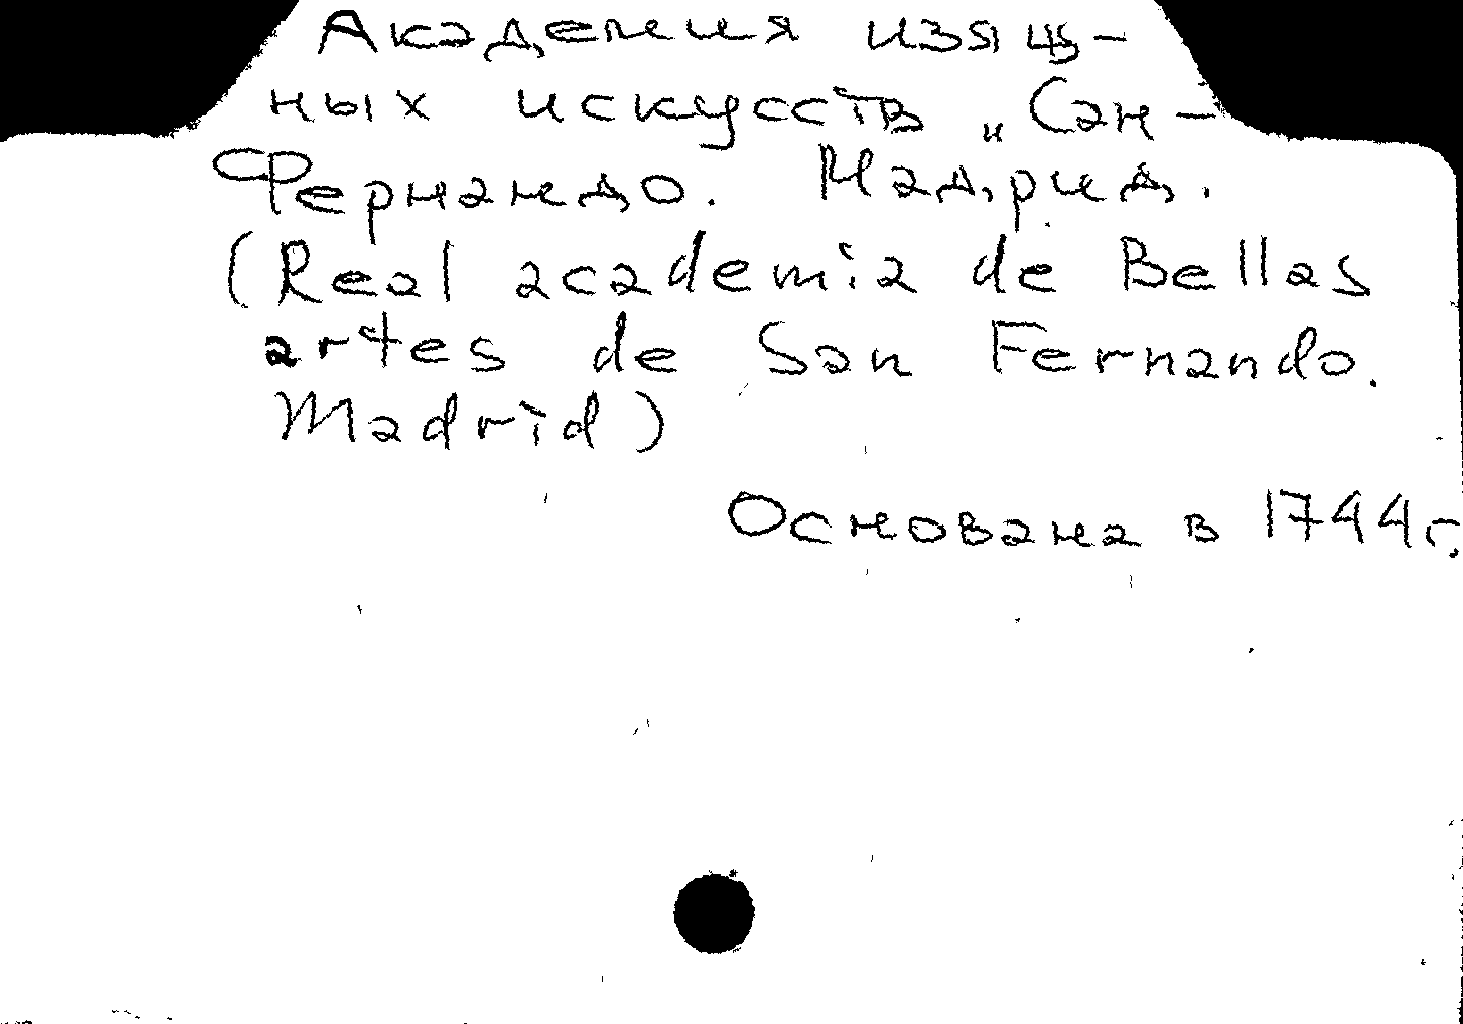 Академия изящ-
ных искусств „Сан-
Фернандо. Мадрид.
(Real academia de Bellas
artes de San Fernando.
Madrid)
Основана в 1744 г.